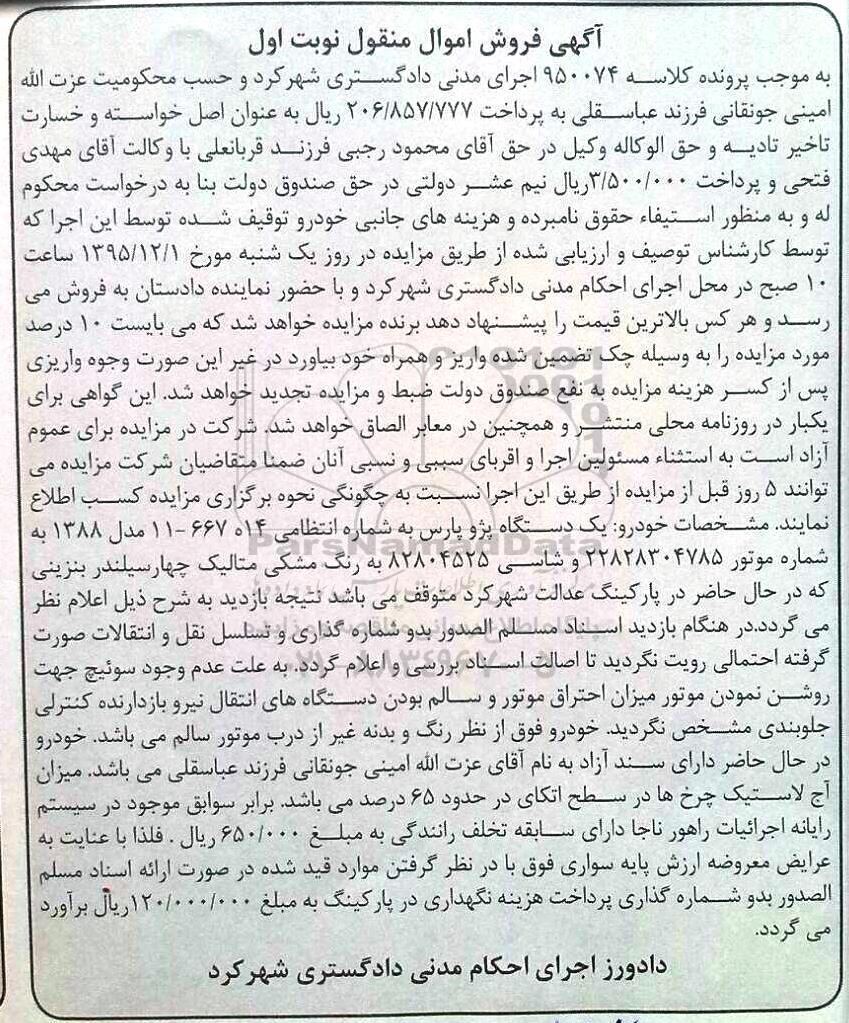 آگهی فروش اموال منقول نوبت اول
به موجب پرونده کلاسه ۹۵۰۰۷۴ اجرای مدنی دادگستری شهرکرد و حسب محکومیت عزت الله
امینی جونقانی فرزند عباسقلی به پرداخت ۲۰۶/۸۵۷/۷۷۷ ریال به عنوان اصل خواسته و خسارت
تاخیر تادیه و حق الوکاله وکیل در حق آقای محمود رجبی فرزند قربانعلی با وکالت آقای مهدی
فتحی و پرداخت ۳/۵۰۰/۰۰۰ریال نیم عشر دولتی در حق صندوق دولت بنا به درخواست محکوم
له و به منظور استیفاء حقوق نامبرده و هزینه های جانبی خودرو توقیف شده توسط این اجرا که
توسط کارشناس توصیف و ارزیابی شده از طریق مزایده در روز یک شنبه مورخ ۱۳۹۵/۱۲/۱ ساعت
۱۰ صبح در محل اجرای احکام مدنی دادگستری شهرکرد و با حضور نماینده دادستان به فروش می
رسد و هر کس بالاترین قیمت را پیشنهاد دهد برنده مزایده خواهد شد که می بایست ۱۰ درصد
مورد مزایده را به وسیله چک تضمین شده واریز و همراه خود بیاورد در غیر این صورت وجوه واریزی
پس از کسر هزینه مزایده به نفع صندوق دولت ضبط و مزایده تجدید خواهد شد. این گواهی برای
یکبار در روزنامه محلی منتشر و همچنین در معابر الصاق خواهد شد. شرکت در مزایده برای عموم
آزاد است به استثناء مسئولین اجرا و اقربای سببی و نسبی آنان ضمنا متقاضیان شرکت مزایده می
توانند ۵ روز قبل از مزایده از طریق این اجرا نسبت به چگونگی نحوه برگزاری مزایده کسب اطلاع
نمایند. مشخصات خودرو: یک دستگاه پژو پارس به شماره انتظامی ۱۴ه ۶۶۷ -۱۱ مدل ۱۳۸۸ به
شماره موتور ۲۲۸۲۸۳۰۴۷۸۵ و شاسی ۸۲۸۰۴۵۲۵ به رنگ مشکی متالیک چهارسیلندر بنزینی
که در حال حاضر در پارکینگ عدالت شهرکرد متوقف می باشد نتیجه بازدید به شرح ذیل اعلام نظر
می گردد.در هنگام بازدید اسناد مسلم الصدور بدو شماره گذاری و تسلسل نقل و انتقالات صورت
گرفته احتمالی رویت نگردید تا اصالت اسناد بررسی و اعلام گردد. به علت عدم وجود سوئیچ جهت
روشن نمودن موتور میزان احتراق موتور و سالم بودن دستگاه های انتقال نیرو بازدارنده کنترلی
جلوبندی مشخص نگردید. خودرو فوق از نظر رنگ و بدنه غیر از درب موتور سالم می باشد. خودرو
در حال حاضر دارای سند آزاد به نام آقای عزت الله امینی جونقانی فرزند عباسقلی می باشد. میزان
آج لاستیک چرخ ها در سطح اتکای در حدود ۶۵ درصد می باشد. برابر سوابق موجود در سیستم
رایانه اجرائیات راهور ناجا دارای سابقه تخلف رانندگی به مبلغ ۶۵۰/۰۰۰ ریال . فلذا با عنایت به
عرایض معروضه ارزش پایه سواری فوق با در نظر گرفتن موارد قید شده در صورت ارائه اسناد مسلم
الصدور بدو شماره گذاری پرداخت هزینه نگهداری در پارکینگ به مبلغ ۱۲۰/۰۰۰/۰۰۰ریال برآورد
می گردد.
دادورز اجرای احکام مدنی دادگستری شهرکرد
ParsNamadData